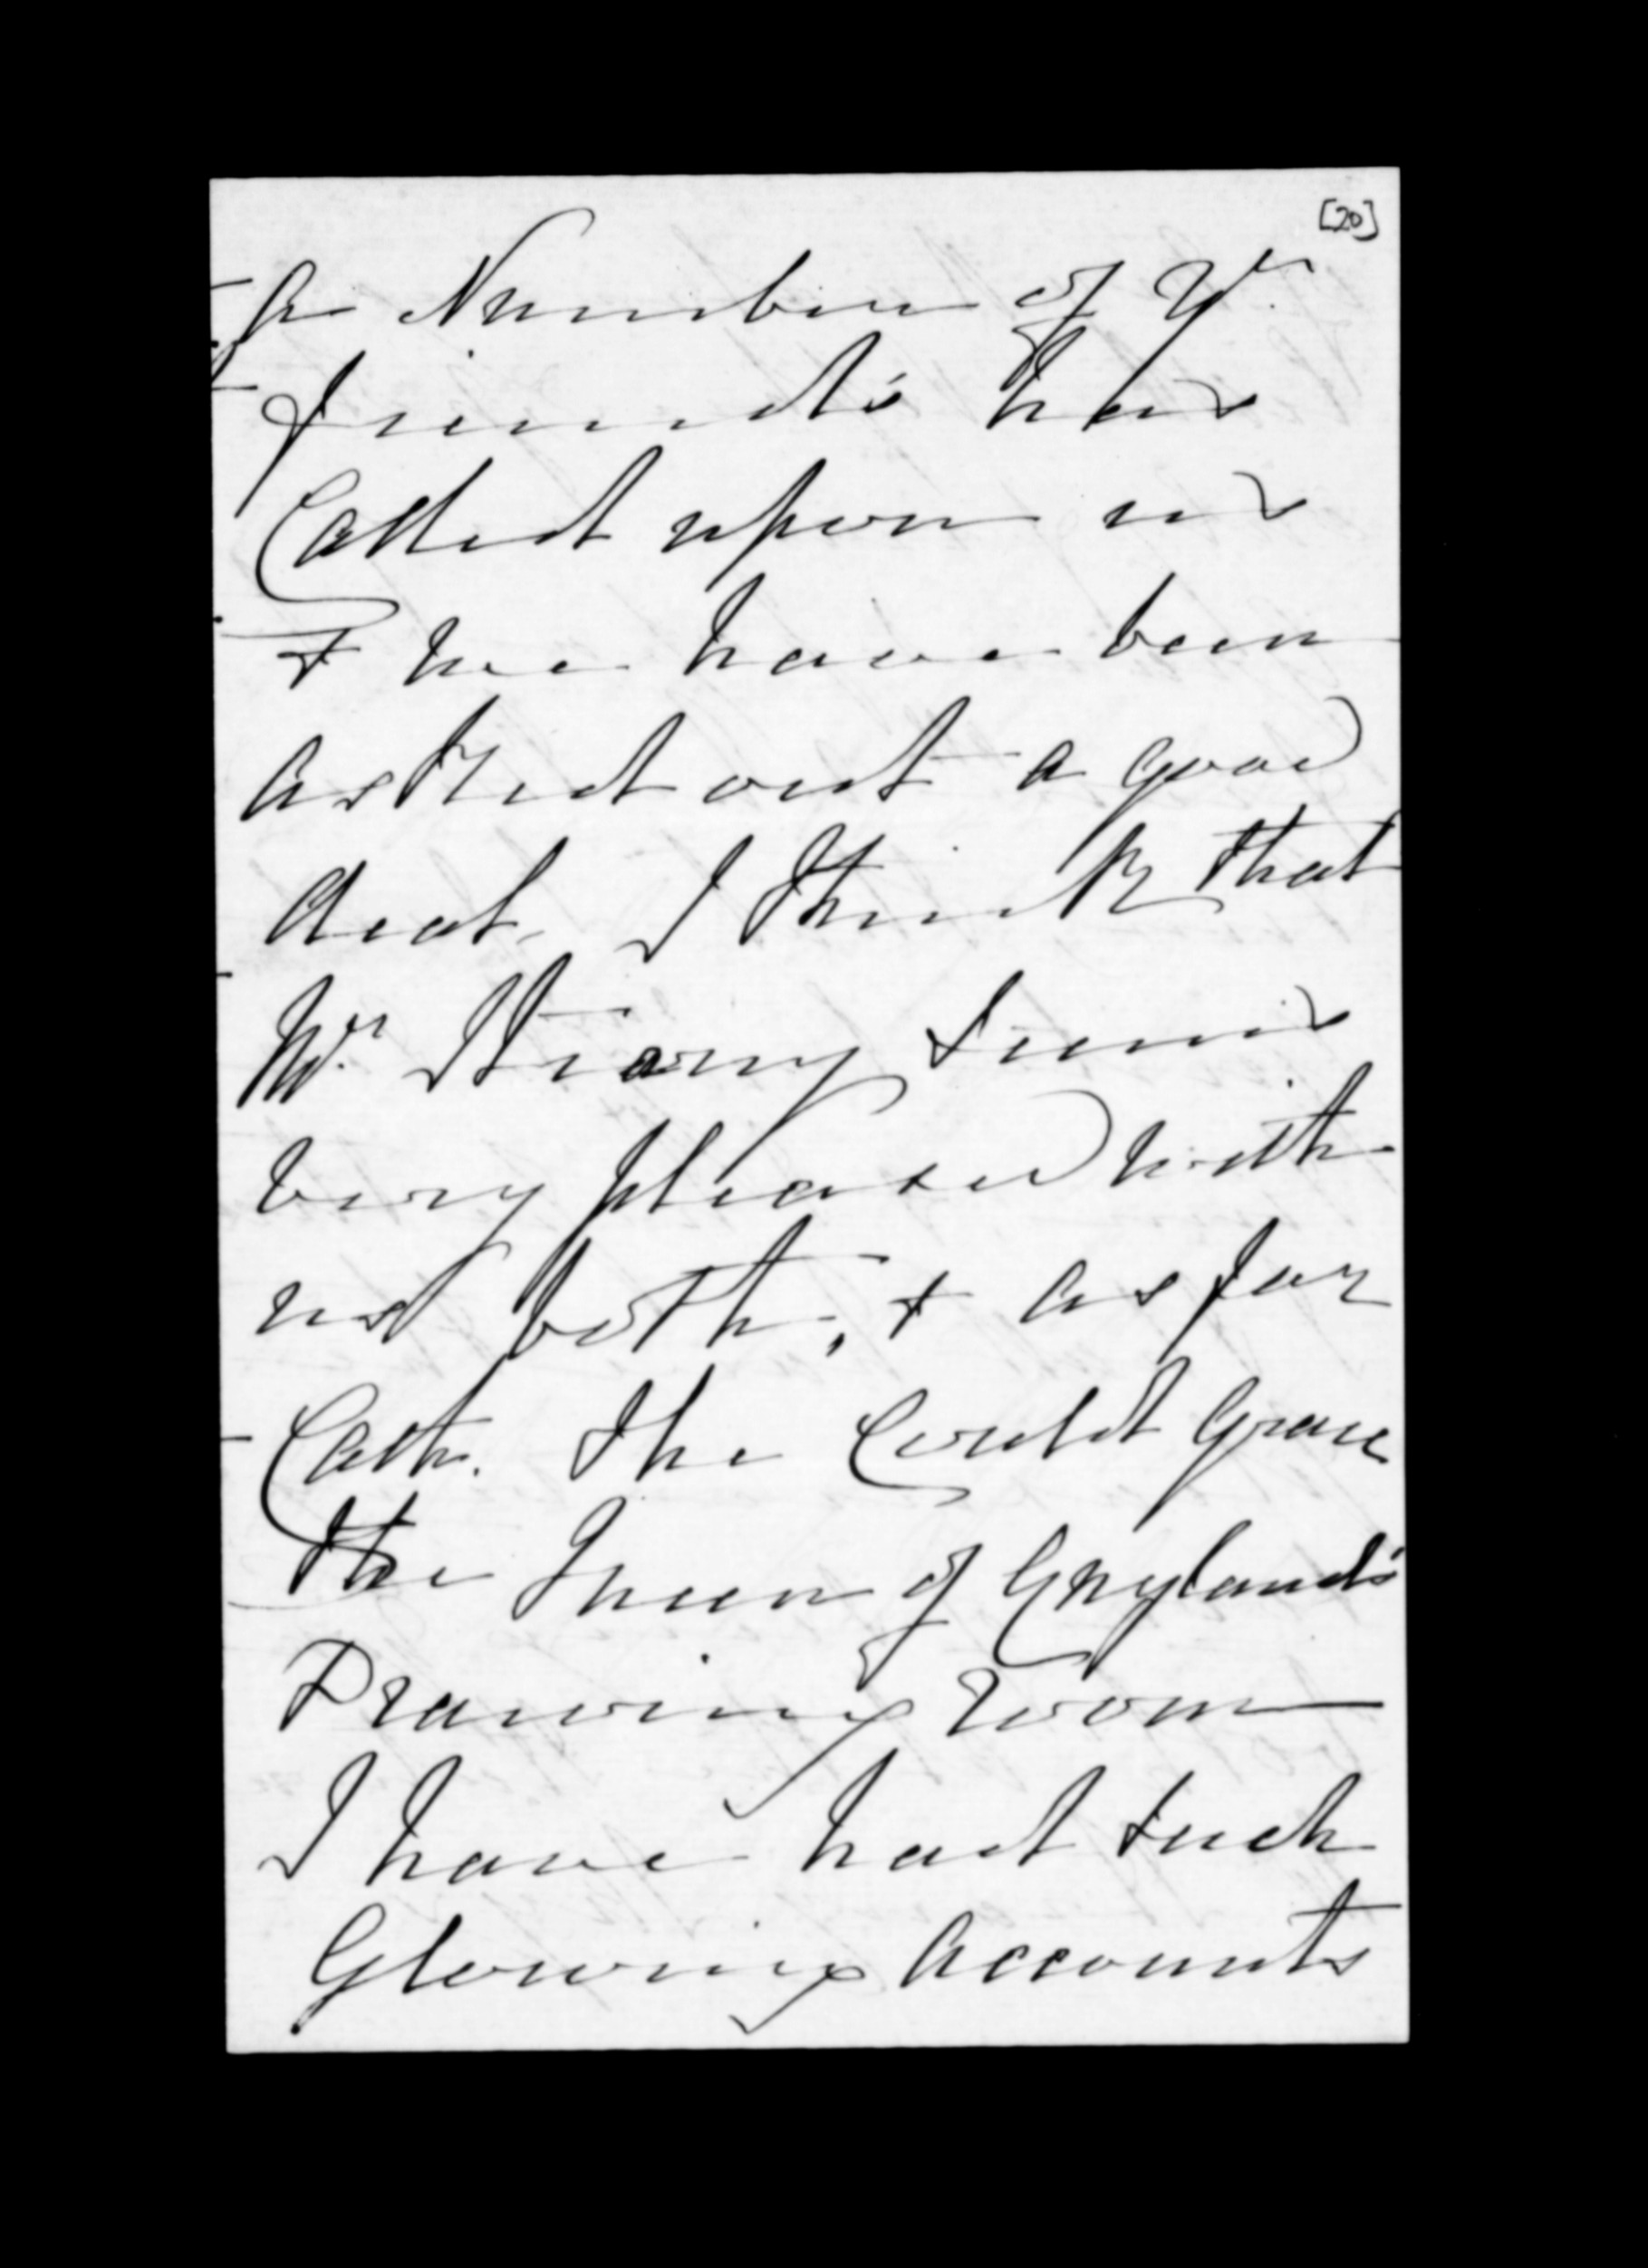 [20]
A Number of Yr.
friend's has
Called upon us
& we have been
asked out a good
deal, I think that
Mr. Stiany Seems
very pleased with
us both, & as for
Cath. She Could Grace
the Queen of England's
Drawing Room
I have had such
Glowing accounts